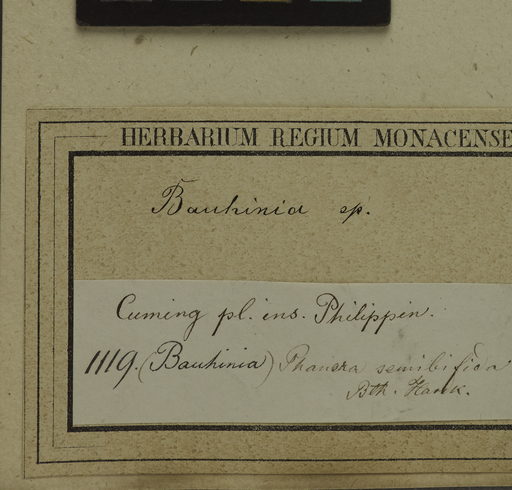 HERBARIUM REGIUM MONACENSE
Bauhinia sp.
Cuming pl. ins. Philippin.
1119. (Bauhinia) Phanera semibifida
Bth. Hook.